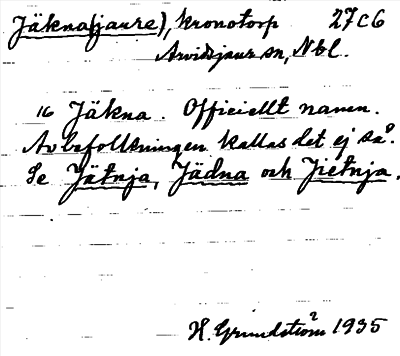 Jäkna(jaure), kronotorp 27c6
Arvidsjaur sn, Nbl.
16 Jäkna. Officiellt namn.
Av befolkningen kallas det ej så.
Se Jätnja, Jädna och Jietnja.
H. Grundström 1935